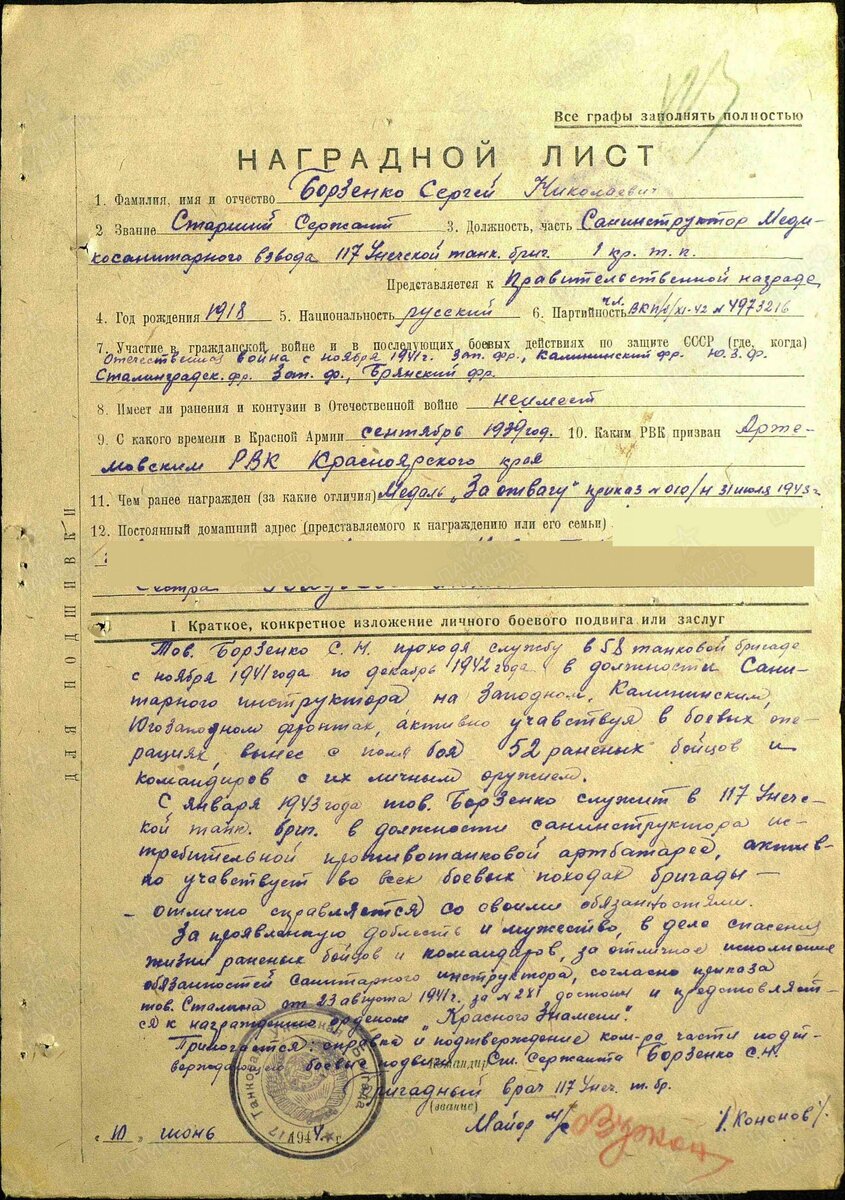 Все графы заполнять полностью
НАГРАДНОЙ ЛИСТ
1. Фамилия, имя и отчество Борзенко Сергей Николаевич
2 Звание Старший Сержант 3. Должность, часть Санинструктор Меди-
косанитарного взвода 117 Унечской танк. бриг. 1 кр. т. п.
Представляется к Правительственной награде
4. Год рождения 1918 5. Национальность русский 6. Партийность чл. ВКП/б/ XI-42 № 4973216
7. Участие в гражданской войне и в последующих боевых действиях по защите СССР (где, когда)
Отечественная война с ноября 1941г. Зап. фр., Калининский фр. Ю.З.ф.
Сталинградск. фр. Зап. ф., Брянский фр.
8. Имеет ли ранения и контузии в Отечественной войне неимеет
9. С какого времени в Красной Армии сентябрь 1939 год. 10. Каким РВК призван Арте-
мовским РВК Красноярского края
11. Чем ранее награжден (за какие отличия) Медаль „За отвагу" приказ № 010/н 31 июля 1943г
12. Постоянный домашний адрес (представляемого к награждению или его семьи)
ДЛЯ ПОДШИВКИ
I Краткое, конкретное изложение личного боевого подвига или заслуг
Тов. Борзенко С. Н. проходя службу в 58 танковой бригаде
с ноября 1941 года по декабрь 1942 года в должности Сани-
тарного инструктора на Западном, Калининским,
Югозападном фронтах, активно учавствуя в боевых опе-
рациях, вынес с поля боя 52 раненых бойцов и
командиров с их личным оружием.
С января 1943 года тов. Борзенко служит в 117 Унеч-
ской танк. бриг. в должности санинструктора ис-
требительной противотанковой артбатареи, актив-
но учавствует во всех боевых походах бригады –
– отлично справляется со своими обязаностями.
За проявленную доблесть и мужество, в дело спасения
жизни раненых бойцов и командиров, за отличное исполнение
обязанностей санитарного инструктора, согласно приказа
тов. Сталина от 23 августа 1941г., за № 281 достоин и предсовляет-
ся к награждению орденом „Красного Знамени".
Прилогается: справка и подтверждение ком-ра части подт-
верждающего боевые подвиги Командир Ст. Сержанта Борзенко С. Н.
Бригадный врач 117 Унеч. т. бр.
(звание)
Майор м/с /Кононов/.
„10" июнь 1944 г